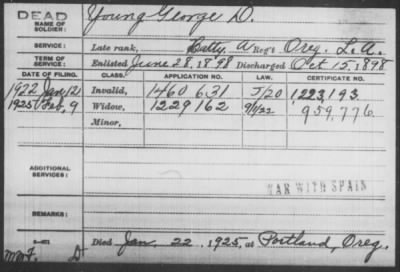 DEAD
NAME OF SOLDIER: Young George D.
SERVICE: Late rank, Batty. A Reg't Oreg. L.A.
TERM OF SERVICE: Enlisted June 28, 1898 Discharged Oct 15, 1898
DATE OF FILING. CLASS. APPLICATION NO. LAW. CERTIFICATE NO.
1922 Jan 12 Invalid, 1460 631 J/20 1,223,193.
1925 Feb, 9 Widow, 1229 162 959,776
Minor,
ADDITIONAL SERVICES:
WAR WITH SPAIN
REMARKS:
Died Jan. 22, 1925, at Portland, Oreg.